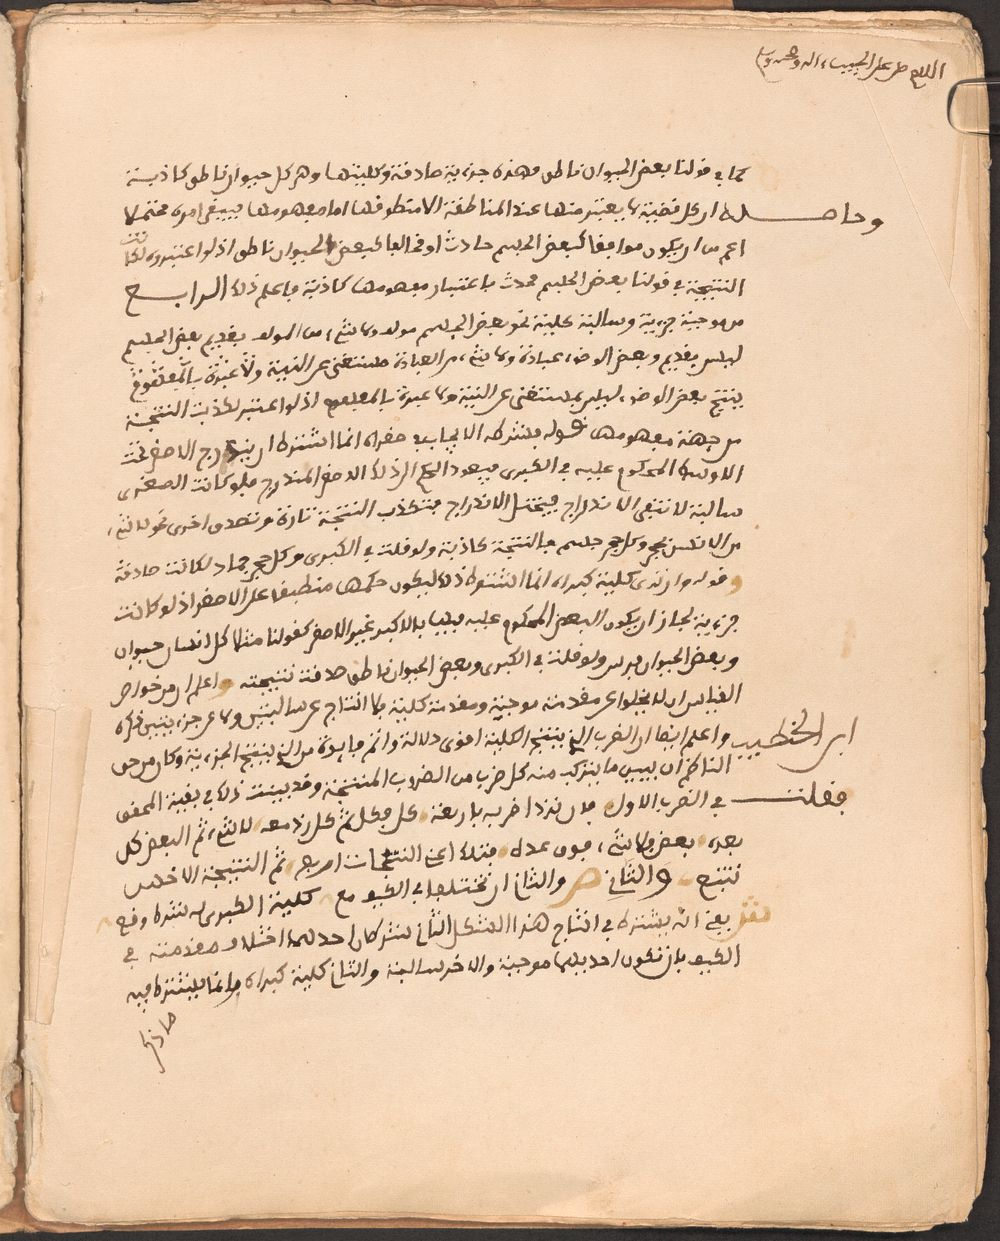 اللهم صل على الحبيب واله وصحبه وسلم
كما في قولنا بعض الحيوان ناطق فهذه جزءية صادفة وكليتها وهو كل حيوان ناطق كاذبة
وحاصله ان كل قضية لا يعتبر منها عند المناطقة الا منطوقها اما مفهومها فيبقى امره محتملا
اعم من ان يكون موافقا كبعض الجسم حادث او مخالفا كبعض الحيوان ناطق اذ لو اعتبروه لكانت
النتيجة في قولنا بعض الجسم محدث باعتبار مفهومها كاذبة فاعلم ذلك الرابع
من موجبة جزءية وسالبة كلية نحو بعض الجسم مولف ولا شيء من المولف بقديم بعض الجسم
ليس بقديم وبعض الوضوء عبادة ولا شيء من العبادة مستغنى عن النية ولا عبرة بالمفهوم
ينتج بعض الوضوء ليس بمستغنى عن النية ولا عبرة بالمفهوم اذ لو اعتبر لكذبت النتيجة
من جهة مفهومها قوله يشترط الايجاب في صغراه انما اشترط ان يندرج الاصغر تحت
الاوسط المحكوم عليه في الكبرى فيعود الحكم الى ذلك الاصغر المندرج فلو كانت الصغرى
سالبة لانتفى الاندراج فيختل الاندراج فتكذب النتيجة تارة وتصدق اخرى نحو لا شيء
من الانسان بحجر وكل حجر جسم فالنتيجة كاذبة ولو قلت في الكبرى وكل حجر جماد لكانت صادقة
وقوله وان ترى كلية كبراه انما اشترط ذلك ليكون حكمها منطبقا على الاصغر اذ لو كانت
جزءية لجاز ان يكون البعض المحكوم عليه فيها بالاكبر غير الاصغر كقولنا مثلا كل انسان حيوان
وبعض الحيوان فرس ولو قلت في الكبرى وبعض الحيوان ناطق صدقت نتيجته واعلم ان من خواص
القياس ان لا يخلوا عن مقدمة موجبة ومقدمة كلية فلا انتاج عن سالبتين ولا عن جزءيتين ذكره
ابن الخطيب واعلم ايضا ان الضرب الذي ينتج الكلية اقوى دلالة واتم فايدة من الذي ينتج الجزءية وكان من حق
الناظم ان يبين ما يتركب منه كل ضرب من الضروب المنتجة وقد بينت ذلك في بقية المحقق
فقلت في الضرب الاول فلان ترد اضربه باربعة كل فكل ثم كل رد معه لا شيء ثم البعض كل
بعد بعض فلا شيء فوفى عده فتلك اعني النتيجات اربع ثم النتيجة الاخس
تتبع والثاني ص والثان ان يختلفا في الكيف مع كلية الكبرى له شرط وقع
ش يعني انه يشترط في انتاج هذا الشكل الثاني شرطان احدهما اختلاف مقدمته في
الكيف بان تكون احديهما موجبة والاخر سالبة والثان كلية كبراه وانما يشترط فيه
ماذكر